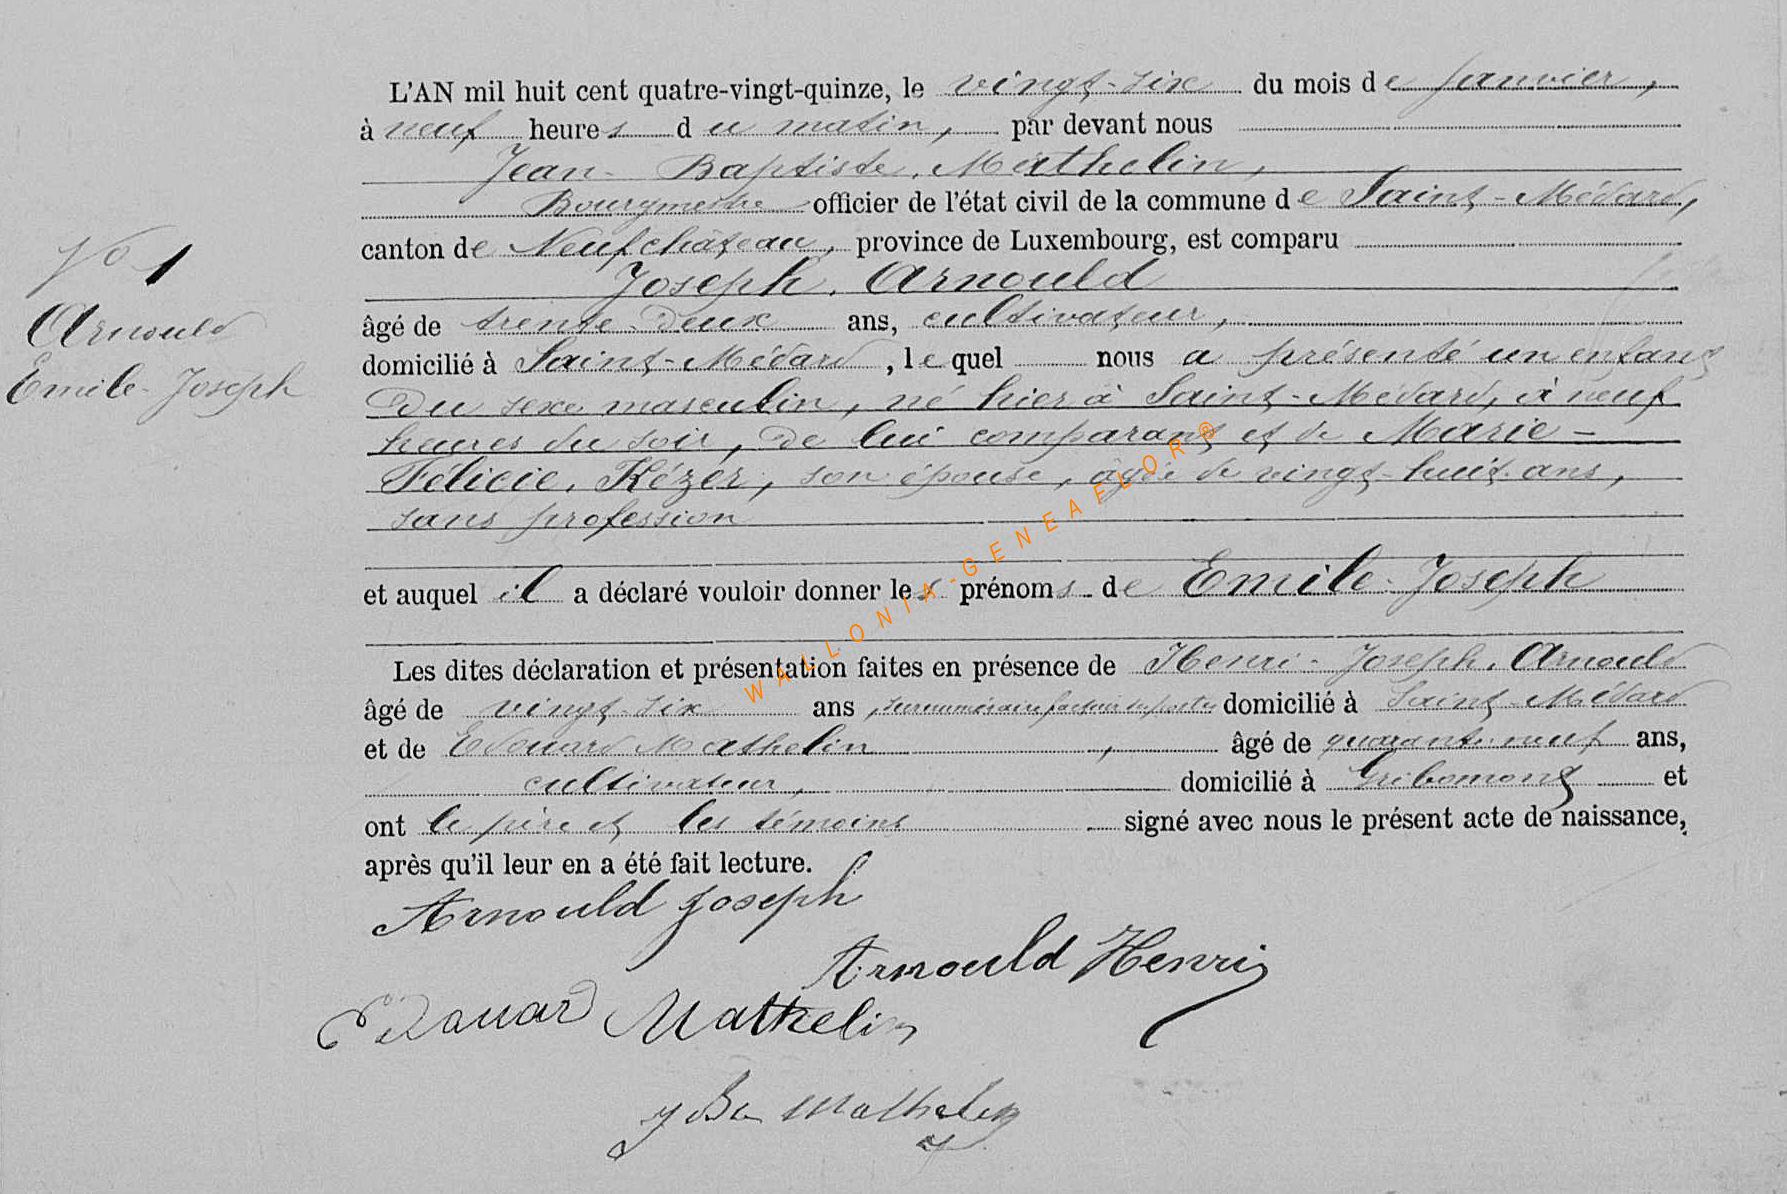 L'AN mil huit cent quatre-vingt-quinze, le vingt-six du mois de Janvier,
à neuf heures du matin, par devant nous
Jean-Baptiste Mathelin,
Bourgmestre officier de l'état civil de la commune de Saint-Médard,
canton de Neufchâteau, province de Luxembourg, est comparu
Joseph Arnould
âgé de trente-deux ans, cultivateur,
domicilié à Saint-Médard, lequel nous a présenté un enfant
du sexe masculin, né hier à Saint-Médard, à neuf
heures du soir, de lui comparant et de Marie-
Félicie Kézér, son épouse, âgée de vingt-huit ans,
sans profession
et auquel il a déclaré vouloir donner les prénoms de Emile-Joseph
Les dites déclaration et présentation faites en présence de Henri-Joseph Arnould
âgé de vingt-six ans, surnuméraire facteur des postes domicilié à Saint-Médard
et de Edouard Mathelin, âgé de quarante-neuf ans,
cultivateur, domicilié à Gribomont et
ont le père et les témoins signé avec nous le présent acte de naissance,
après qu'il leur en a été fait lecture.
No 1
Arnould
Emile-Joseph
Arnould Joseph
Arnould Henri
Edouard Mathelin
J Bte Mathelin
WALLONIA-GENEAFLOR®